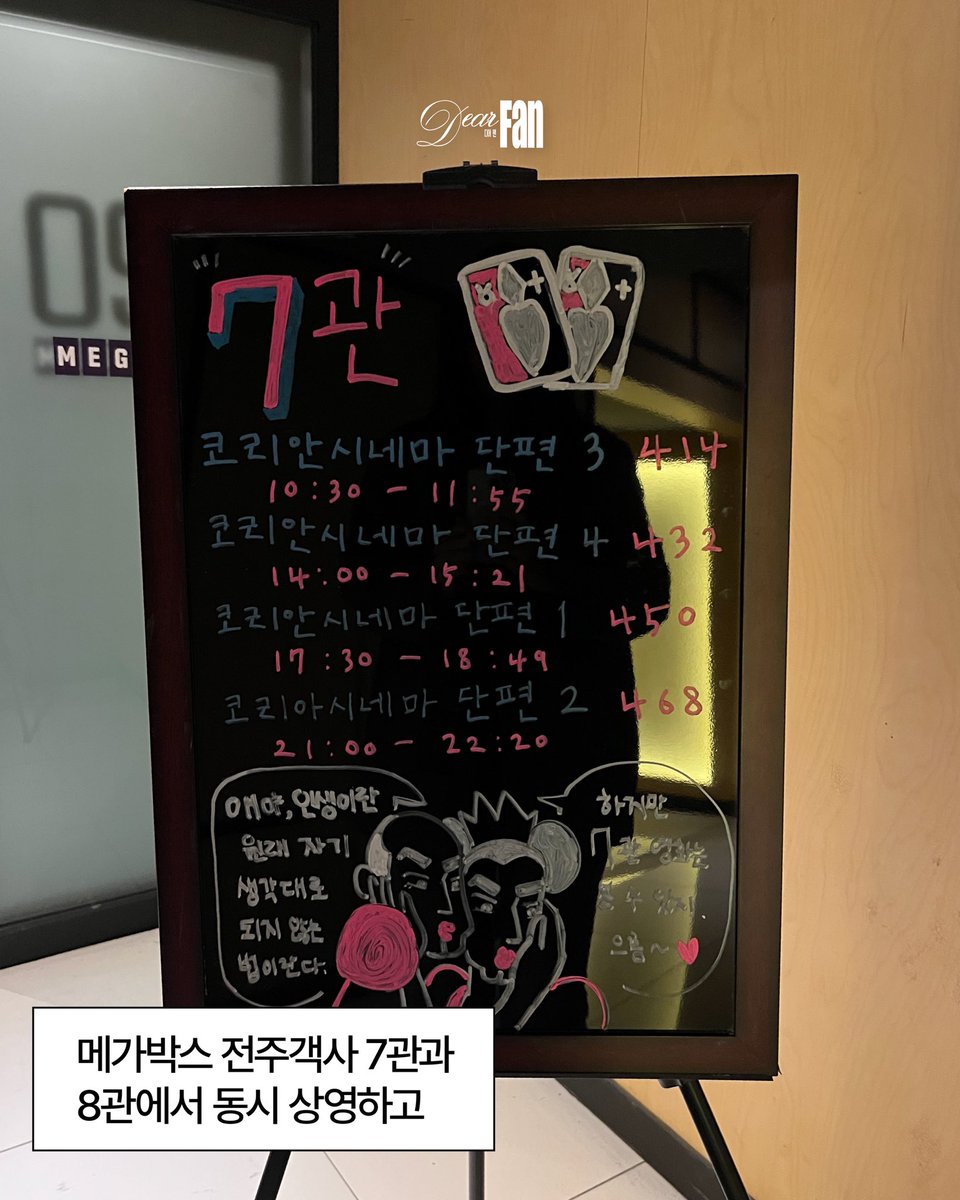 Dear FAN
디어 팬
MEG
7관
코리안시네마 단편 3 414
10:30 - 11:55
코리안시네마 단편 4 432
14:00 - 15:21
코리안시네마 단편 1 450
17:30 - 18:49
코리아시네마 단편 2 468
21:00 - 22:20
얘야, 인생이란
원래 자기
생각대로
되지 않는
법이란다.
하지만
7관 영화는
볼 수 있지
으흠~
메가박스 전주객사 7관과
8관에서 동시 상영하고